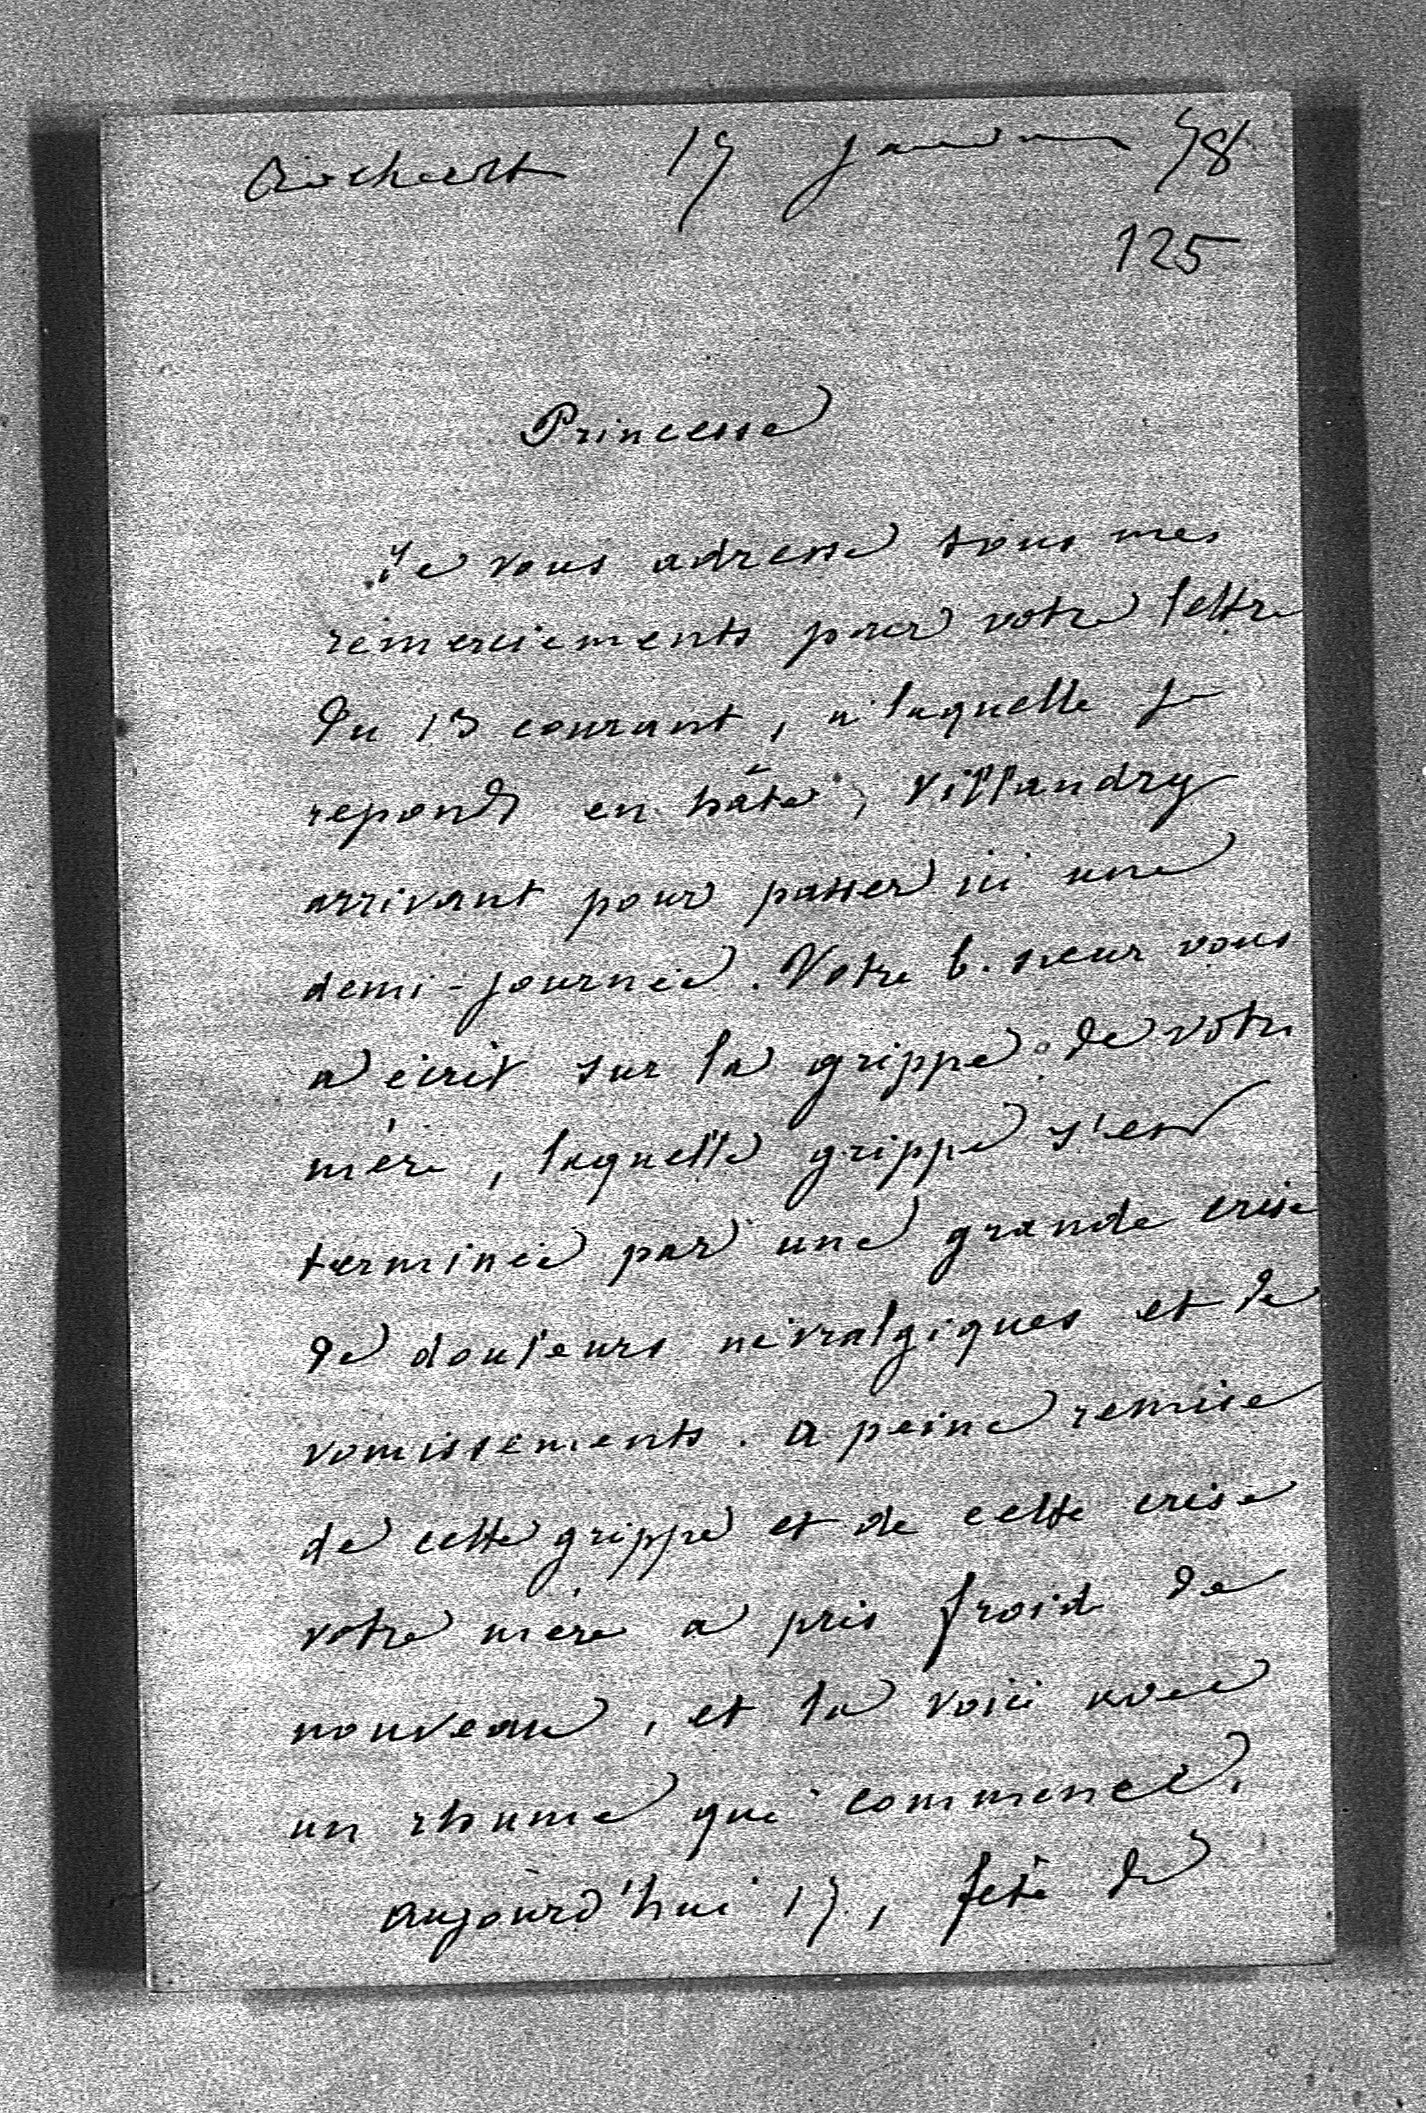 Rochecotte 17 janvier 78
125
Princesse
Je vous adresse tous mes
remerciements pour votre lettre
du 13 courant, a laquelle je
reponds en hâte, Villandry
arrivant pour passer ici une
demi-journée. Votre b. sœur vous
a écrit sur la grippe de votre
mère, laquelle grippe s'est
terminée par une grande crise
de douleurs névralgiques et de
vomissements. a peine remise
de cette grippe et de cette crise
votre mère a pris froid de
nouveau, et la voici avec
un rhume qui commence.
aujourd'hui 17, fete de